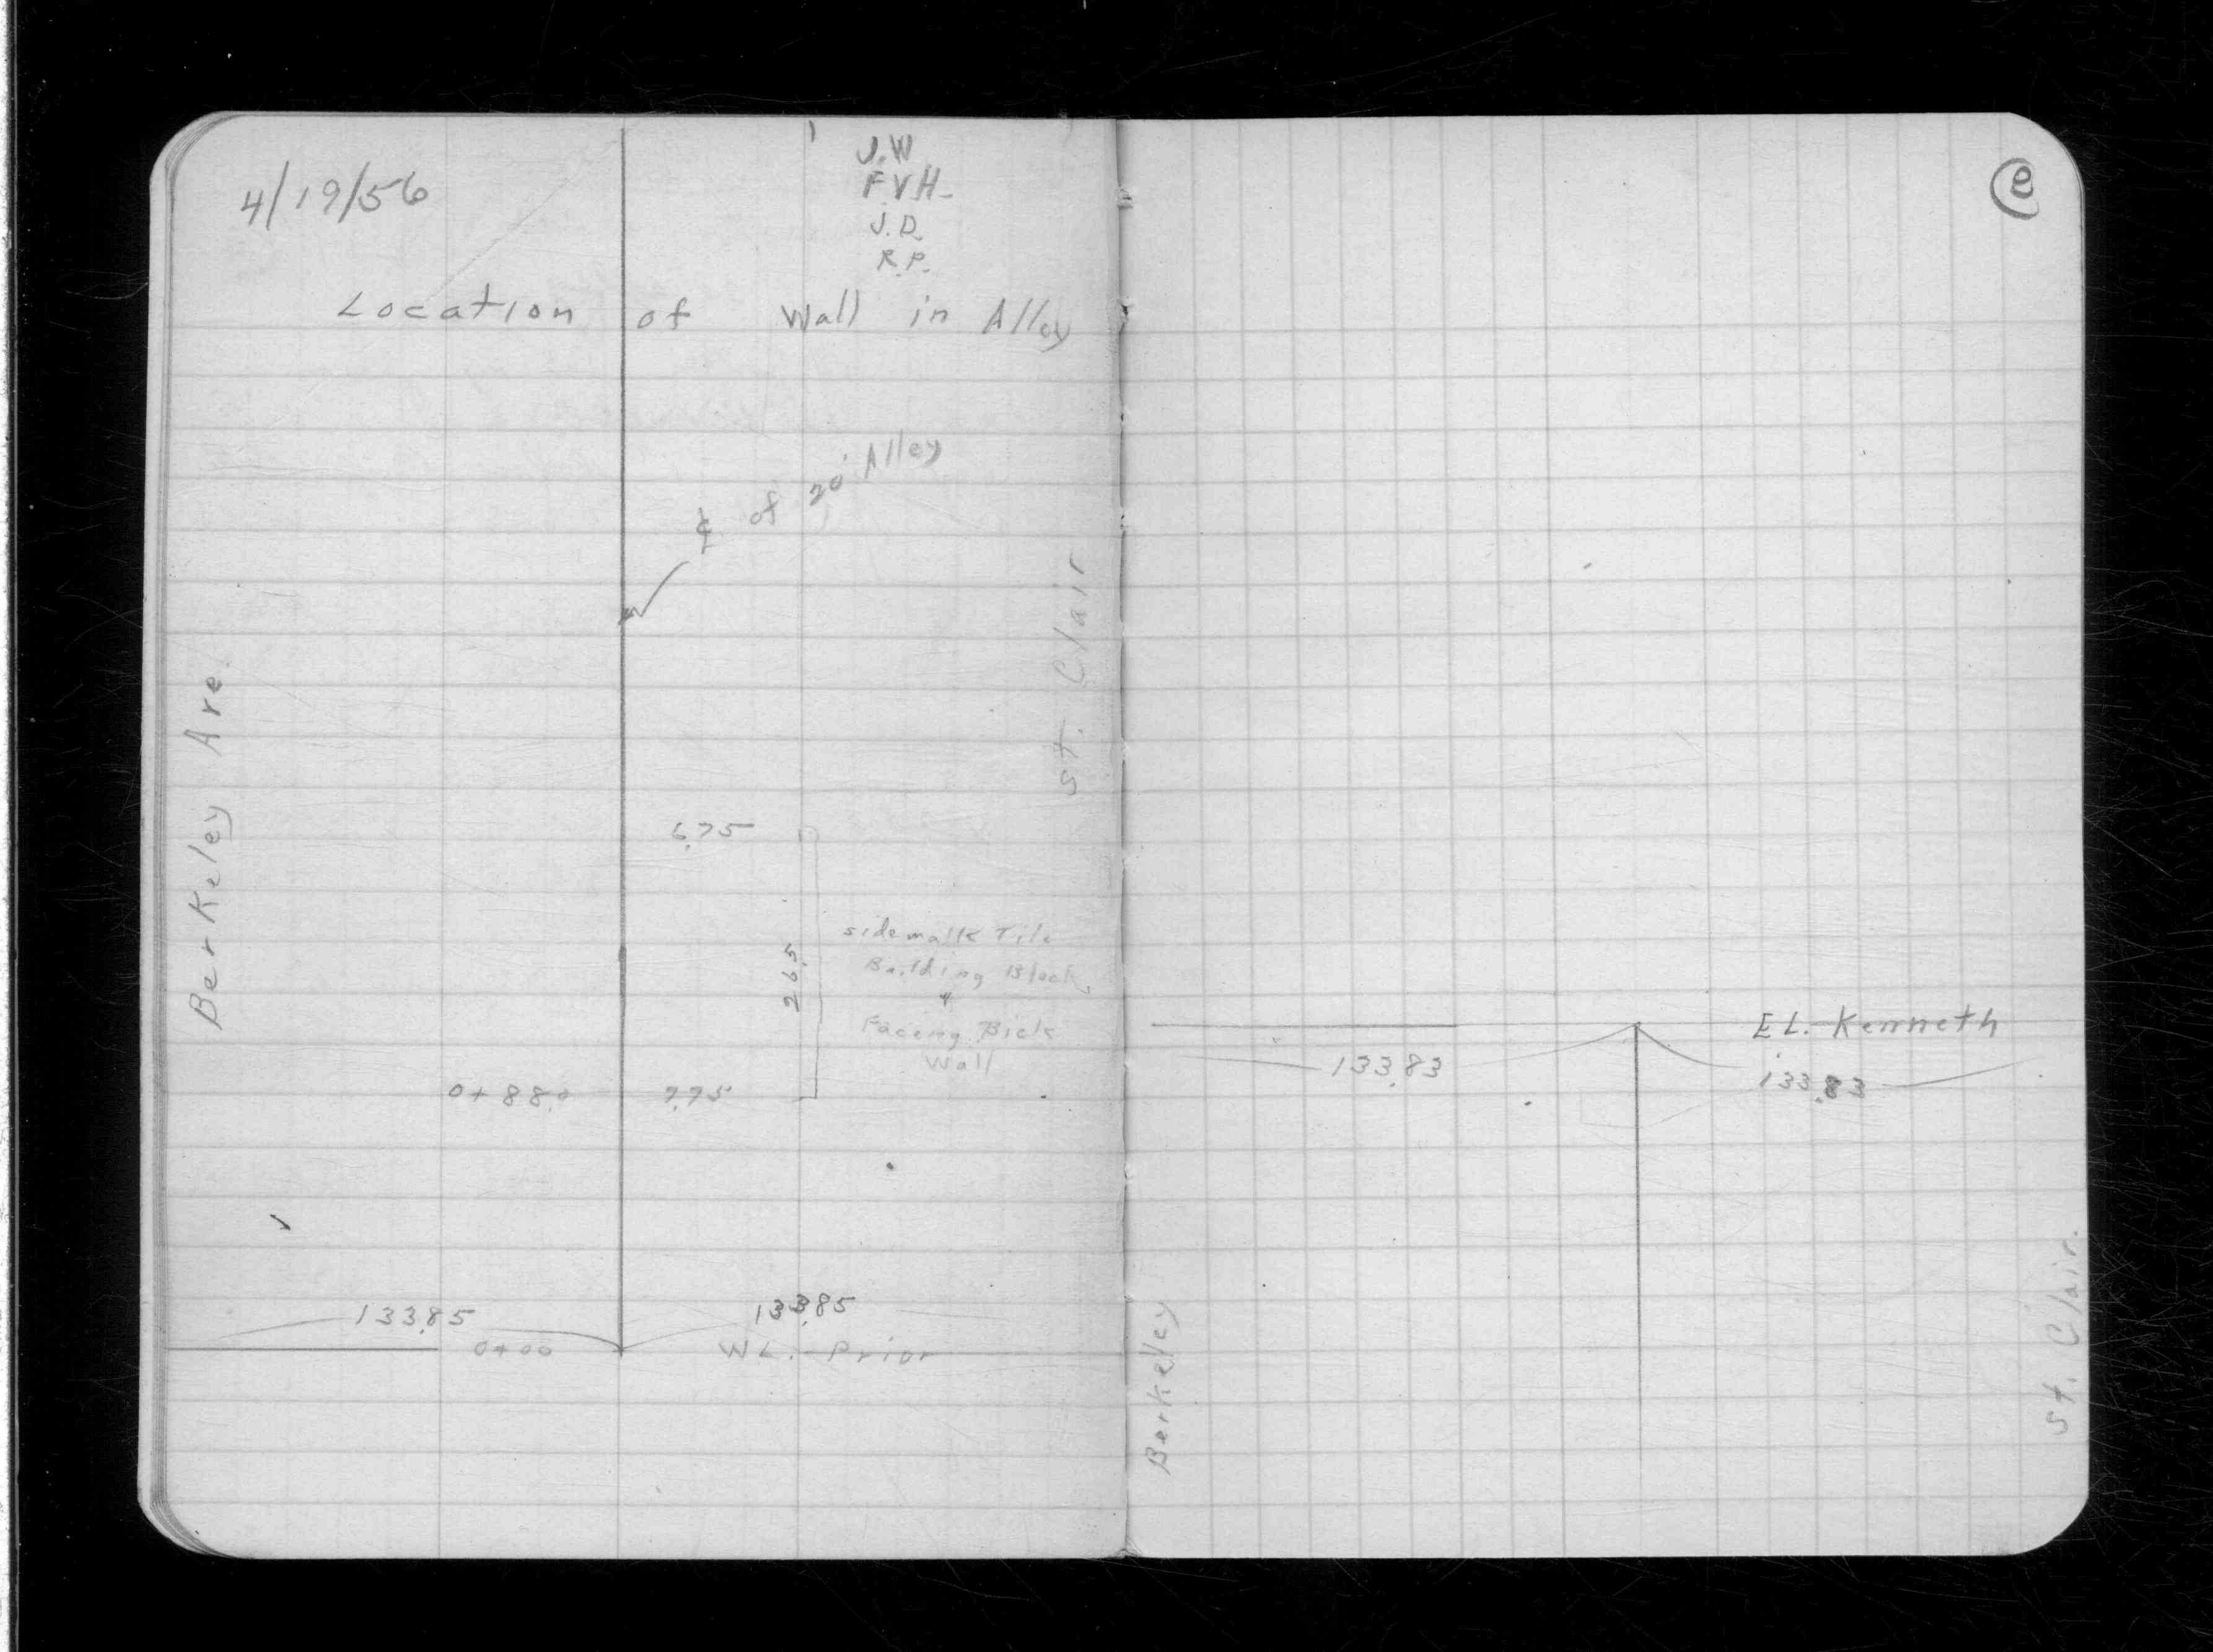 4/19/56
J.W
F.V.H.
J.D.
R.P.
Location of Wall in Alley
℄ of 20' Alley
Berkeley Ave.
St. Clair
6.75
26.5
sidewalk Tile
Building Block
&
Facing Bick
Wall
0+88.0
7.75
133.85
133.85
0+00
W L. Prior
e
E L. Kenneth
133.83
133.83
Berkelley
St. Clair.